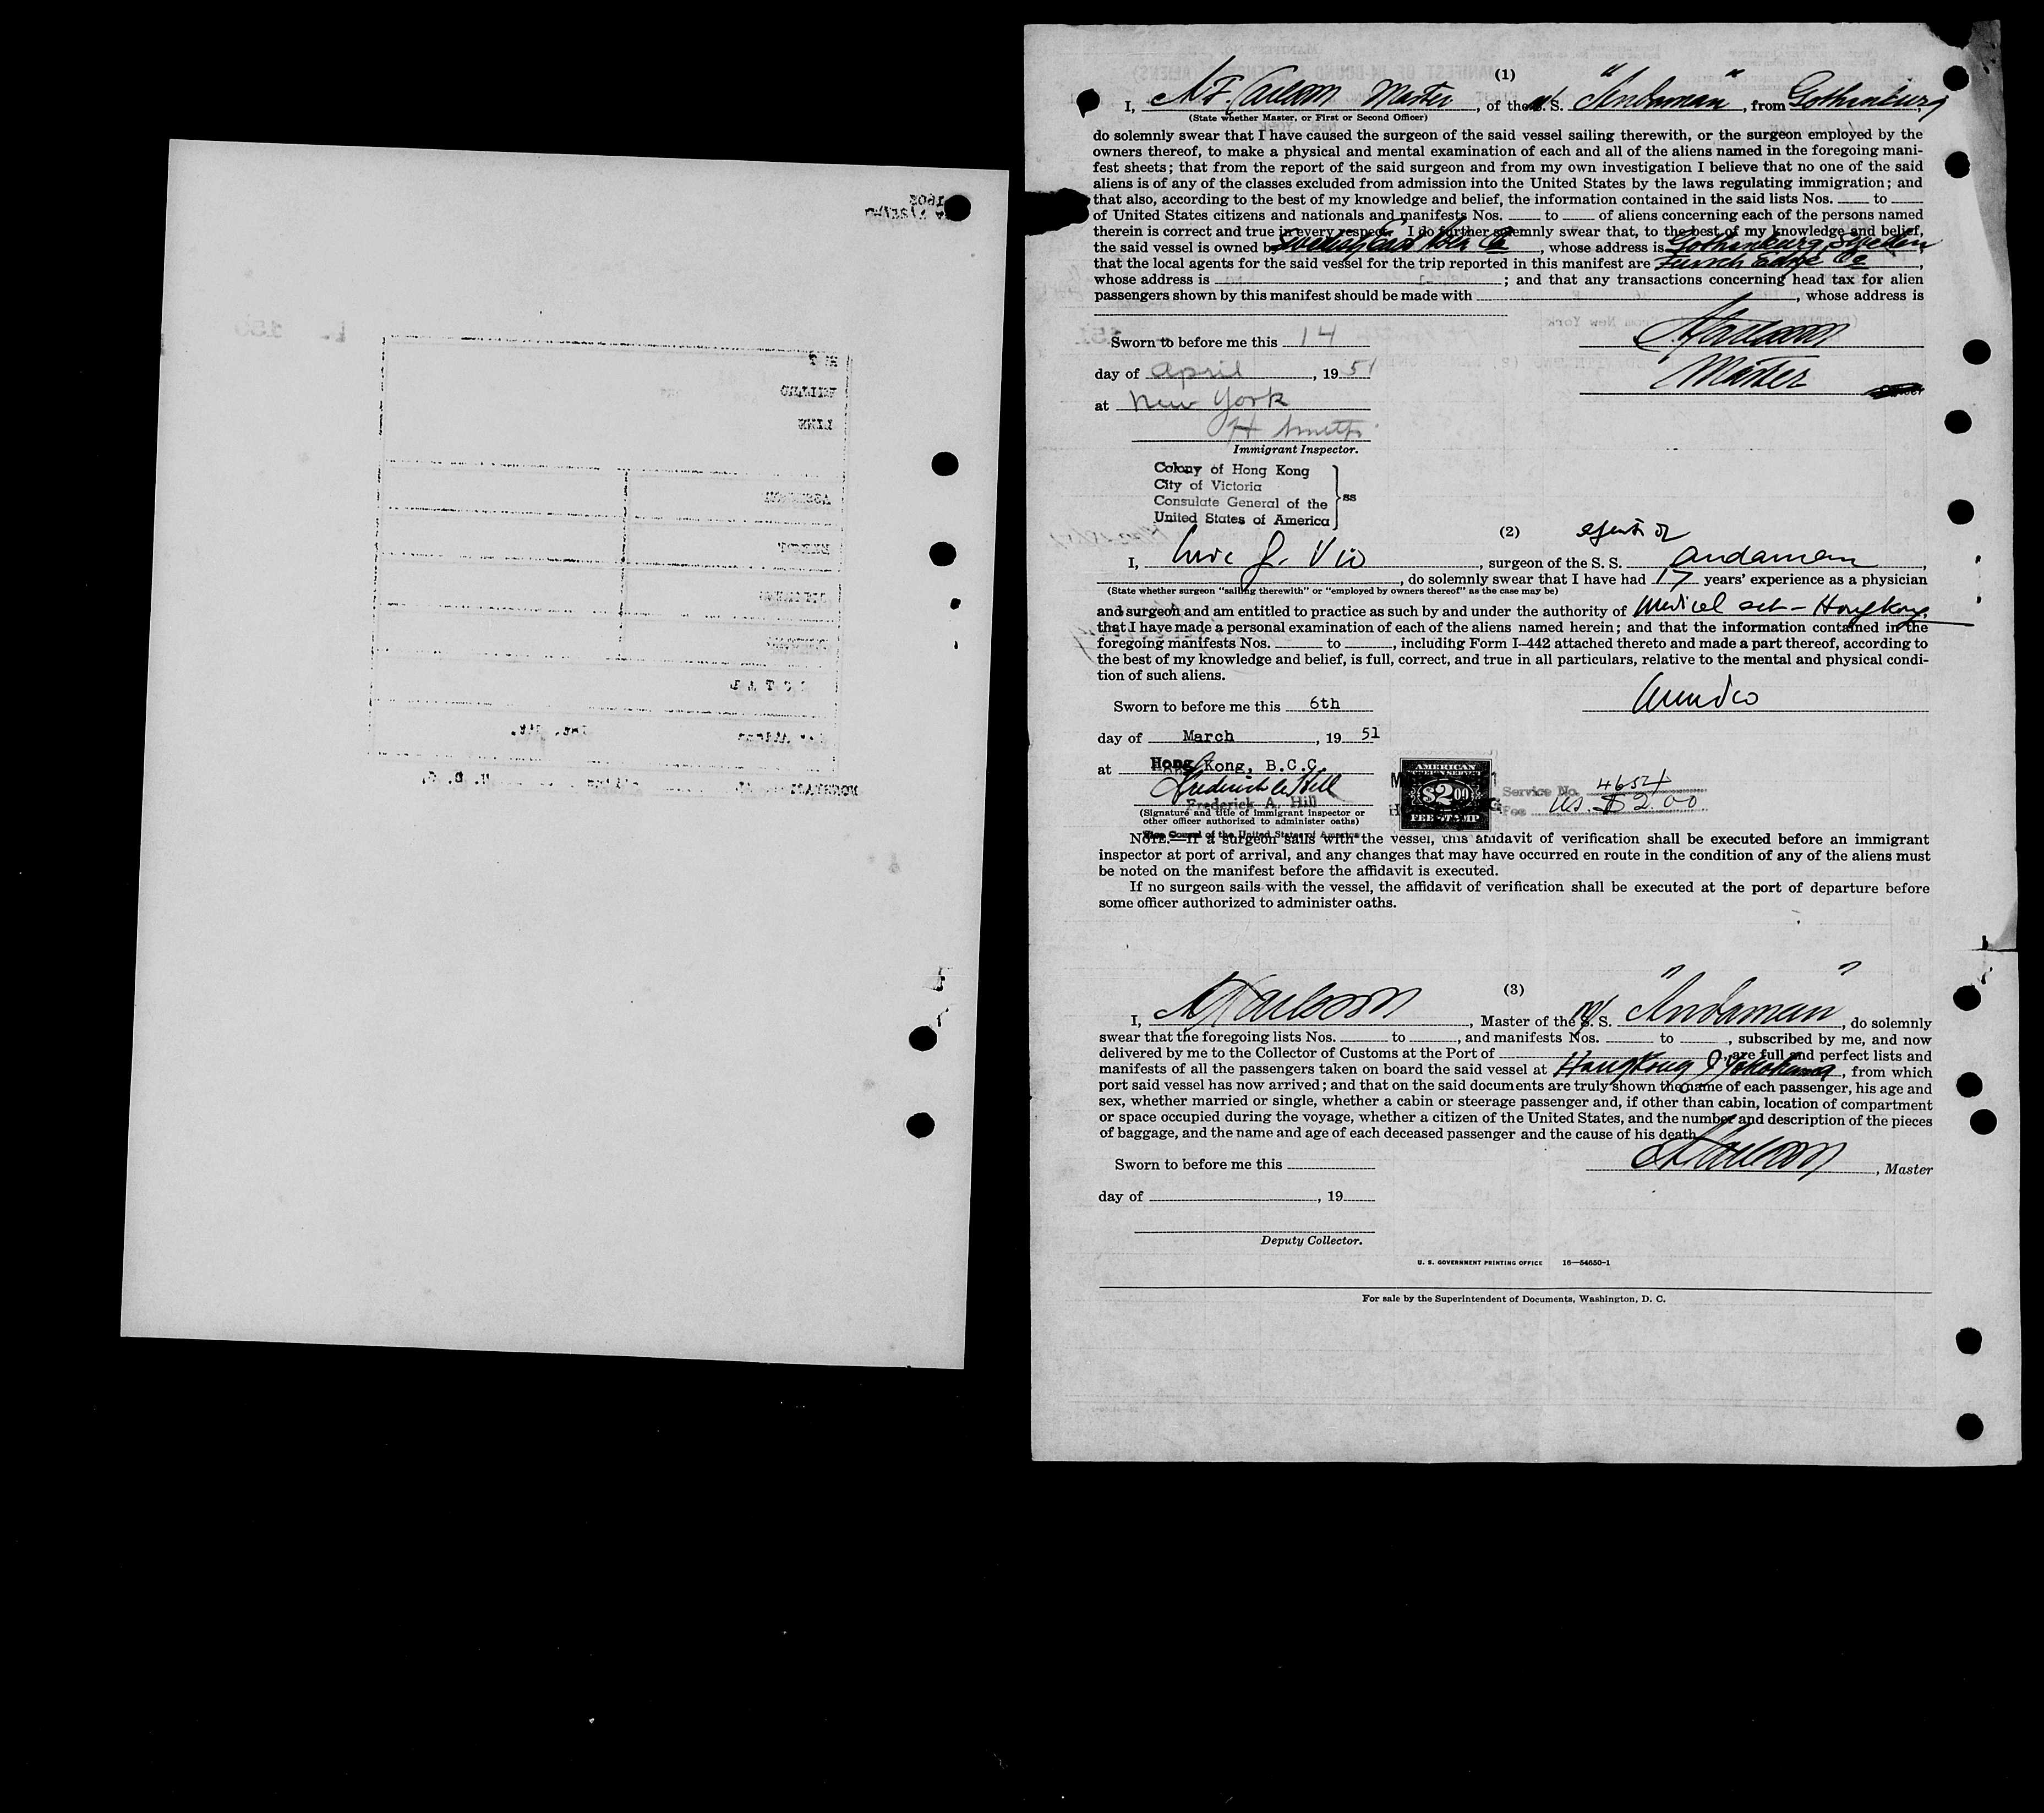 (1)
I, Carlsson Master, of the M. S. "Andaman", from Gothenburg,
(State whether Master, or First or Second Officer)
do solemnly swear that I have caused the surgeon of the said vessel sailing therewith, or the surgeon employed by the
owners thereof, to make a physical and mental examination of each and all of the aliens named in the foregoing mani-
fest sheets; that from the report of the said surgeon and from my own investigation I believe that no one of the said
aliens is of any of the classes excluded from admission into the United States by the laws regulating immigration; and
that also, according to the best of my knowledge and belief, the information contained in the said lists Nos. to
of United States citizens and nationals and manifests Nos. to of aliens concerning each of the persons named
therein is correct and true in every respect. I do further solemnly swear that, to the best of my knowledge and belief,
the said vessel is owned by Swedish East Asia Co, whose address is Gothenburg, Sweden,
that the local agents for the said vessel for the trip reported in this manifest are Funch Edye Co,
whose address is ; and that any transactions concerning head tax for alien
passengers shown by this manifest should be made with , whose address is
Sworn to before me this 14
day of April, 1951
Master
at New York
H Smith
Immigrant Inspector.
Colony of Hong Kong
City of Victoria
Consulate General of the
United States of America
ss
(2)
agents of
I, Vio, surgeon of the S. S. Andaman,
, do solemnly swear that I have had 17 years' experience as a physician
(State whether surgeon "sailing therewith" or "employed by owners thereof" as the case may be)
and surgeon and am entitled to practice as such by and under the authority of Medical act - Hongkong.
that I have made a personal examination of each of the aliens named herein; and that the information contained in the
foregoing manifests Nos. to , including Form I-442 attached thereto and made a part thereof, according to
the best of my knowledge and belief, is full, correct, and true in all particulars, relative to the mental and physical condi-
tion of such aliens.
Sworn to before me this 6th
day of March, 1951
at Hong Kong, B.C.C.
Frederick A. Hill
Frederick A. Hill
(Signature and title of immigrant inspector or
other officer authorized to administer oaths)
Vice Consul of the United States of America
AMERICAN
FOREIGN SERVICE
$2.00
FEE STAMP
Service No. 4654
Fee US. $2.00
NOTE.—If a surgeon sails with the vessel, this affidavit of verification shall be executed before an immigrant
inspector at port of arrival, and any changes that may have occurred en route in the condition of any of the aliens must
be noted on the manifest before the affidavit is executed.
If no surgeon sails with the vessel, the affidavit of verification shall be executed at the port of departure before
some officer authorized to administer oaths.
(3)
I, Carlsson, Master of the M. S. "Andaman", do solemnly
swear that the foregoing lists Nos. to , and manifests Nos. to , subscribed by me, and now
delivered by me to the Collector of Customs at the Port of , are full and perfect lists and
manifests of all the passengers taken on board the said vessel at HongKong & Yokohama, from which
port said vessel has now arrived; and that on the said documents are truly shown the name of each passenger, his age and
sex, whether married or single, whether a cabin or steerage passenger and, if other than cabin, location of compartment
or space occupied during the voyage, whether a citizen of the United States, and the number and description of the pieces
of baggage, and the name and age of each deceased passenger and the cause of his death.
Sworn to before me this
Carlsson, Master
day of , 19
Deputy Collector.
U. S. GOVERNMENT PRINTING OFFICE 16—54650-1
For sale by the Superintendent of Documents, Washington, D. C.